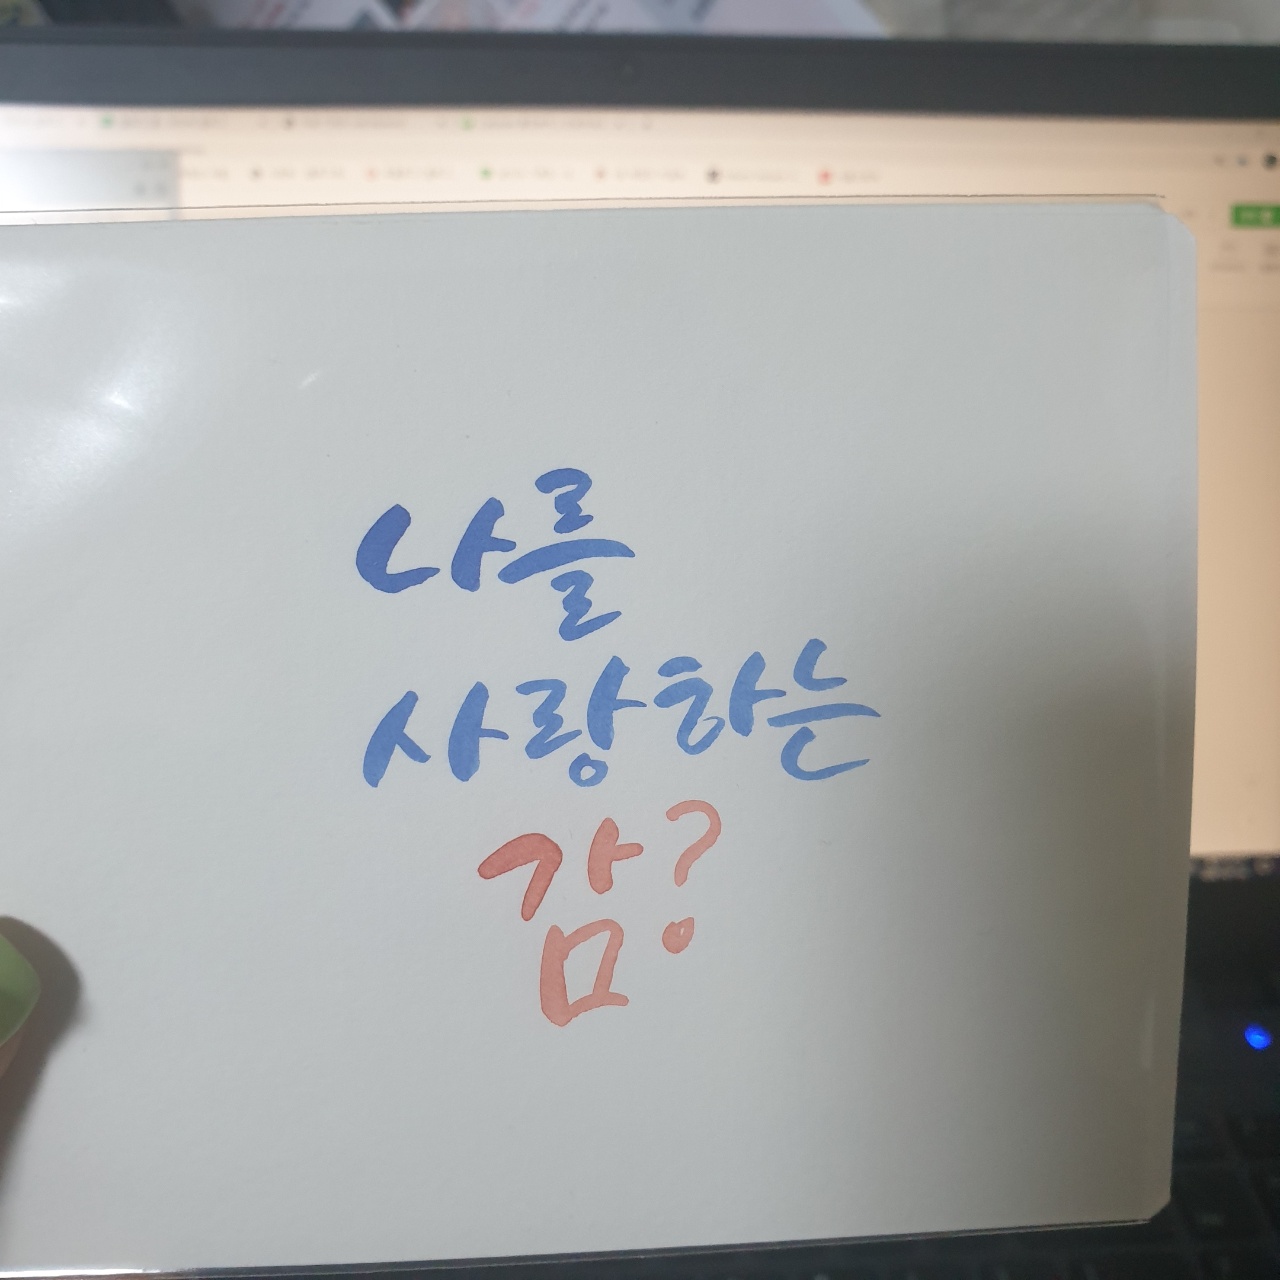 나를
사랑하는
감?